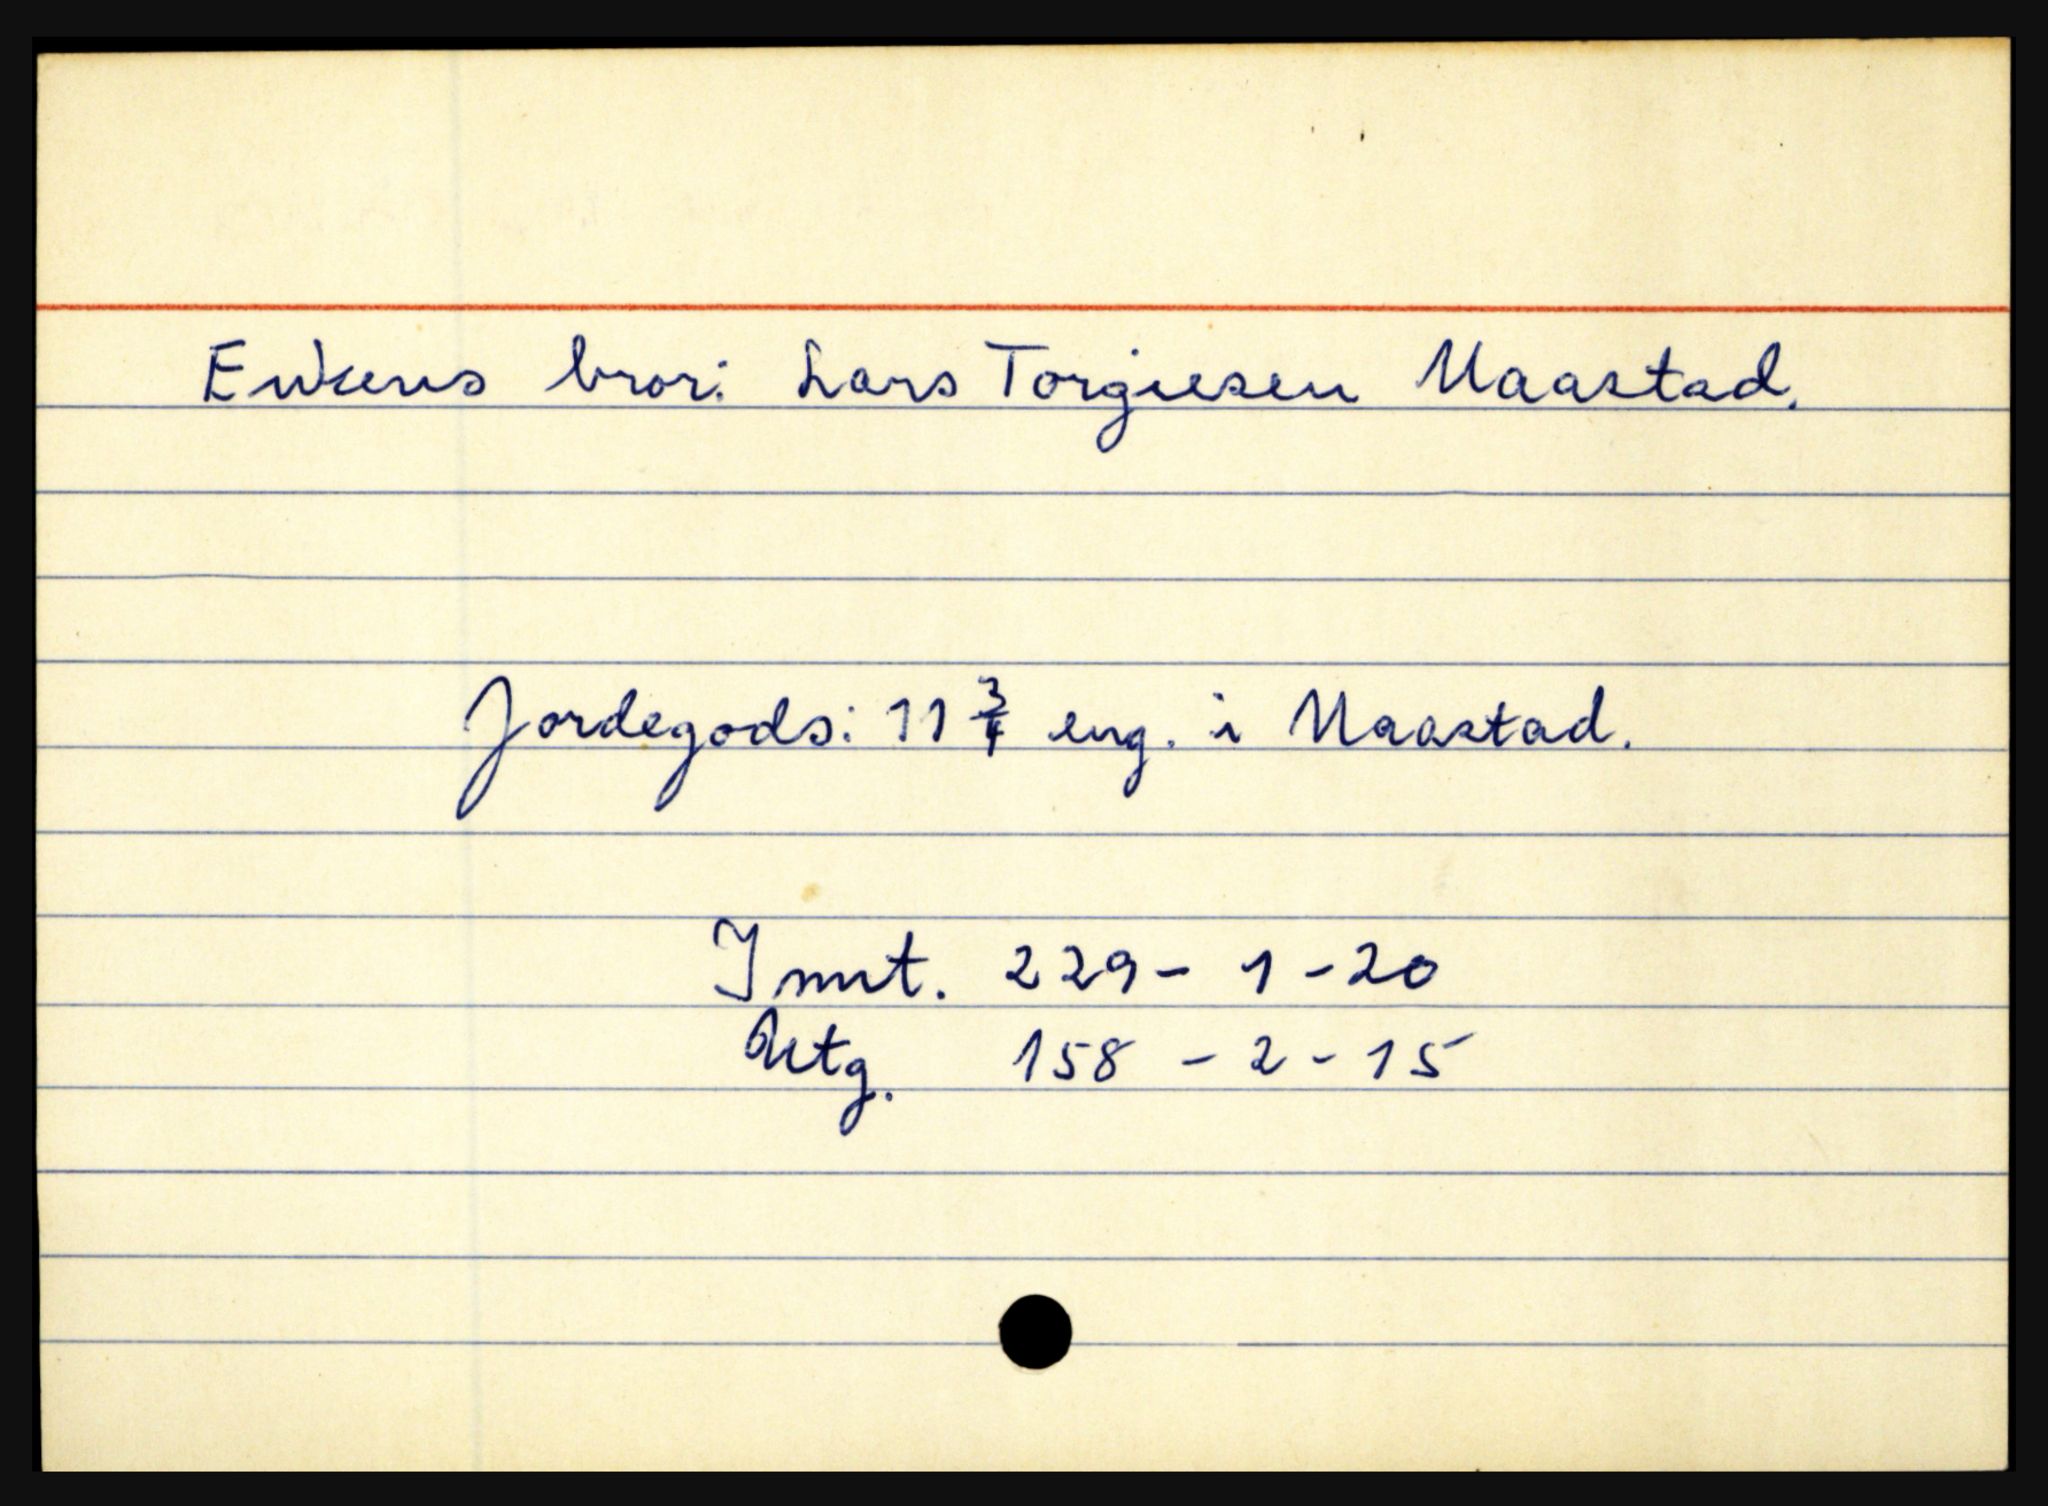 Enkens bror: Lars Torgiesen Maastad.
Jordegods: 11 3/4 eng. i Maastad.
Innt. 229 - 1 - 20
Utg. 158 - 2 - 15